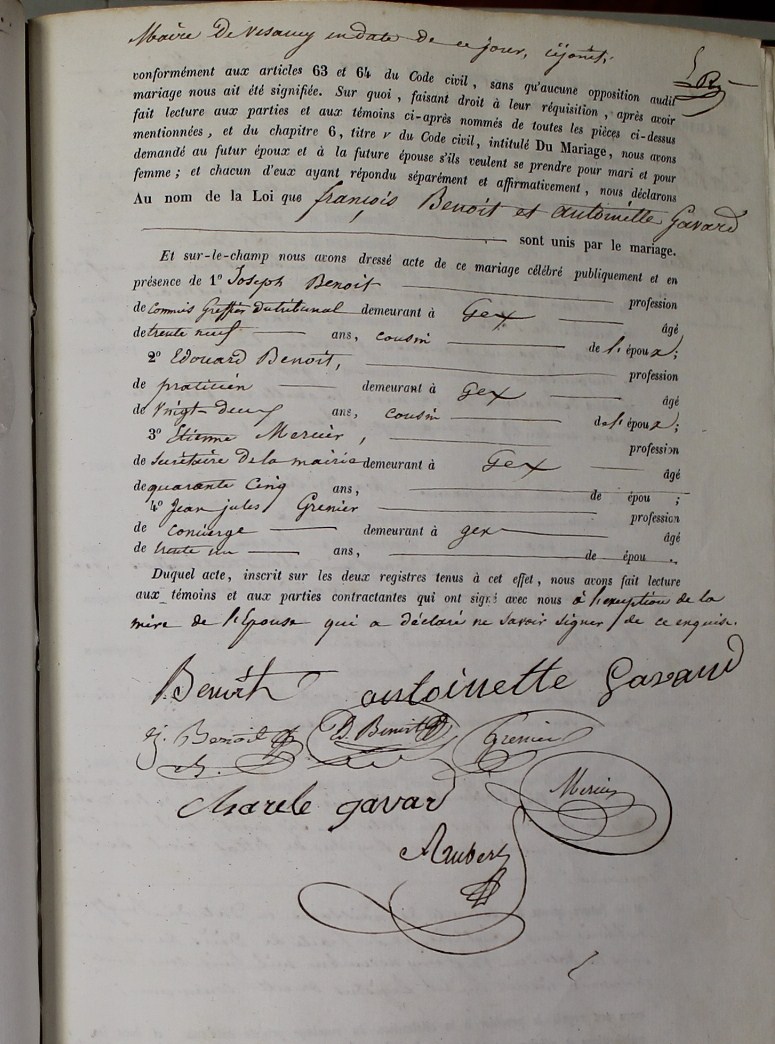 Maire De Vesancy en date de ce jour, ci joint,
conformément aux articles 63 et 64 du Code civil, sans qu'aucune opposition audit
mariage nous ait été signifiée. Sur quoi, faisant droit à leur réquisition, après avoir
fait lecture aux parties et aux témoins ci-après nommés de toutes les pièces ci-dessus
mentionnées, et du chapitre 6, titre v du Code civil, intitulé Du Mariage, nous avons
demandé au futur époux et à la future épouse s'ils veulent se prendre pour mari et pour
femme; et chacun d'eux ayant répondu séparément et affirmativement, nous déclarons
Au nom de la Loi que françois Benoit et antoinette Gavard
sont unis par le mariage.
Et sur-le-champ nous avons dressé acte de ce mariage célébré publiquement et en
présence de 1º Joseph Benoit profession
de commis Greffier du tribunal demeurant à Gex âgé
de trente neuf ans, cousin de l'époux;
2º Edouard Benoit, profession
de praticien demeurant à Gex âgé
de vingt-deux ans, cousin de l'époux;
3º Etienne Mercier, profession
de Secrétaire de la mairie demeurant à Gex âgé
de quarante Cinq ans, de épou ;
4º Jean jules Grenier profession
de Concierge demeurant à gex âgé
de trente un ans, de épou .
Duquel acte, inscrit sur les deux registres tenus à cet effet, nous avons fait lecture
aux témoins et aux parties contractantes qui ont signé avec nous à l'exception de la
mère de l'Epouse qui a déclaré ne savoir signer de ce enquise.
Benoit antoinette Gavard
j. Benoit Benoit Grenier
Mercier
Gavard